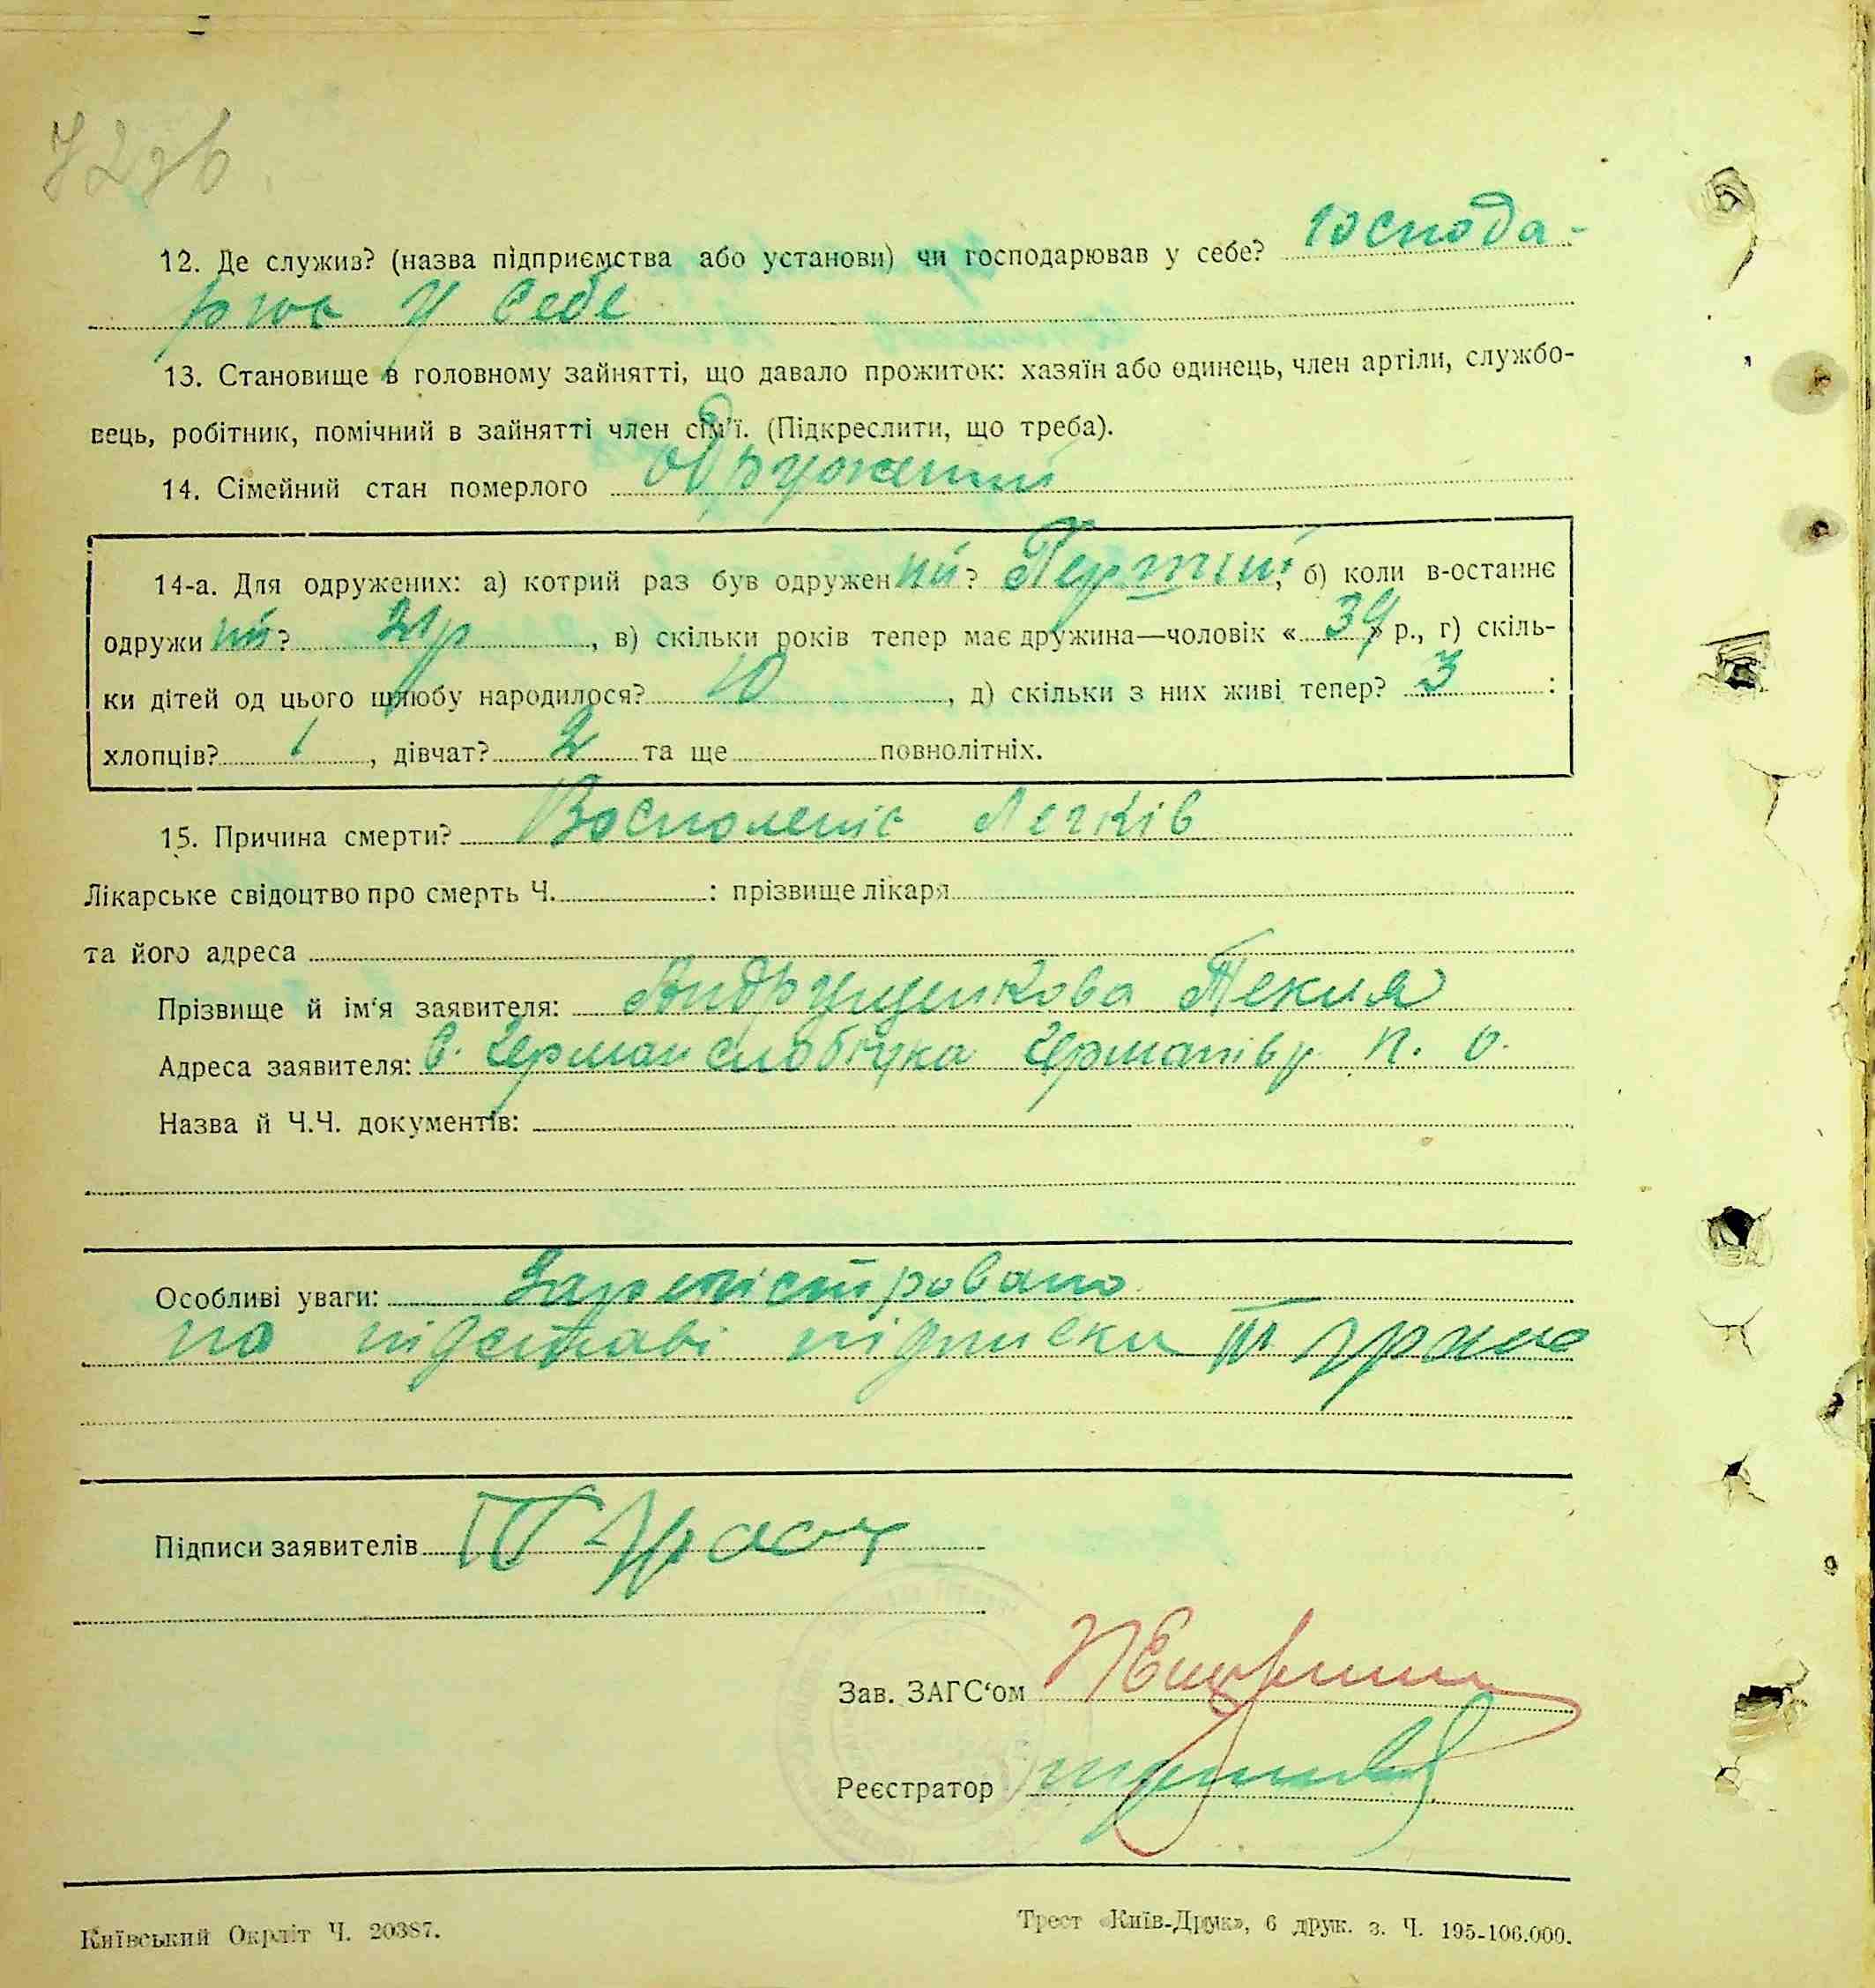 72зв
12. Де служив? (назва підприємства або установи) чи господарював у себе? господа-
рює у себе
13. Становище в головному зайнятті, що давало прожиток: хазяїн або одинець, член артіли, службо-
вець, робітник, помічний в зайнятті член сім'ї. (Підкреслити, що треба).
14. Сімейний стан померлого одружений
14-а. Для одружених: а) котрий раз був одружен ий? Перший; б) коли в-останнє
одружи ий? 21р, в) скільки років тепер має дружина—чоловік «39» р., г) скіль-
ки дітей од цього шлюбу народилося? 10, д) скільки з них живі тепер? 3:
хлопців? 1, дівчат? 2 та ще повнолітніх.
15. Причина смерти? Восполеніє Легків
Лікарське свідоцтво про смерть Ч. : прізвище лікаря
та його адреса
Прізвище й ім'я заявителя: Андрущенкова Текля
Адреса заявителя: С. Герман слобідка Германівр. К. О.
Назва й Ч.Ч. документів:
Особливі уваги: Зарегістровано
на підставі підписки
Підписи заявителів
Зав. ЗАГС'ом
Реєстратор
Київський Окрліт Ч. 20387.
Трест «Київ-Друк», 6 друк. з. Ч. 195-106.000.